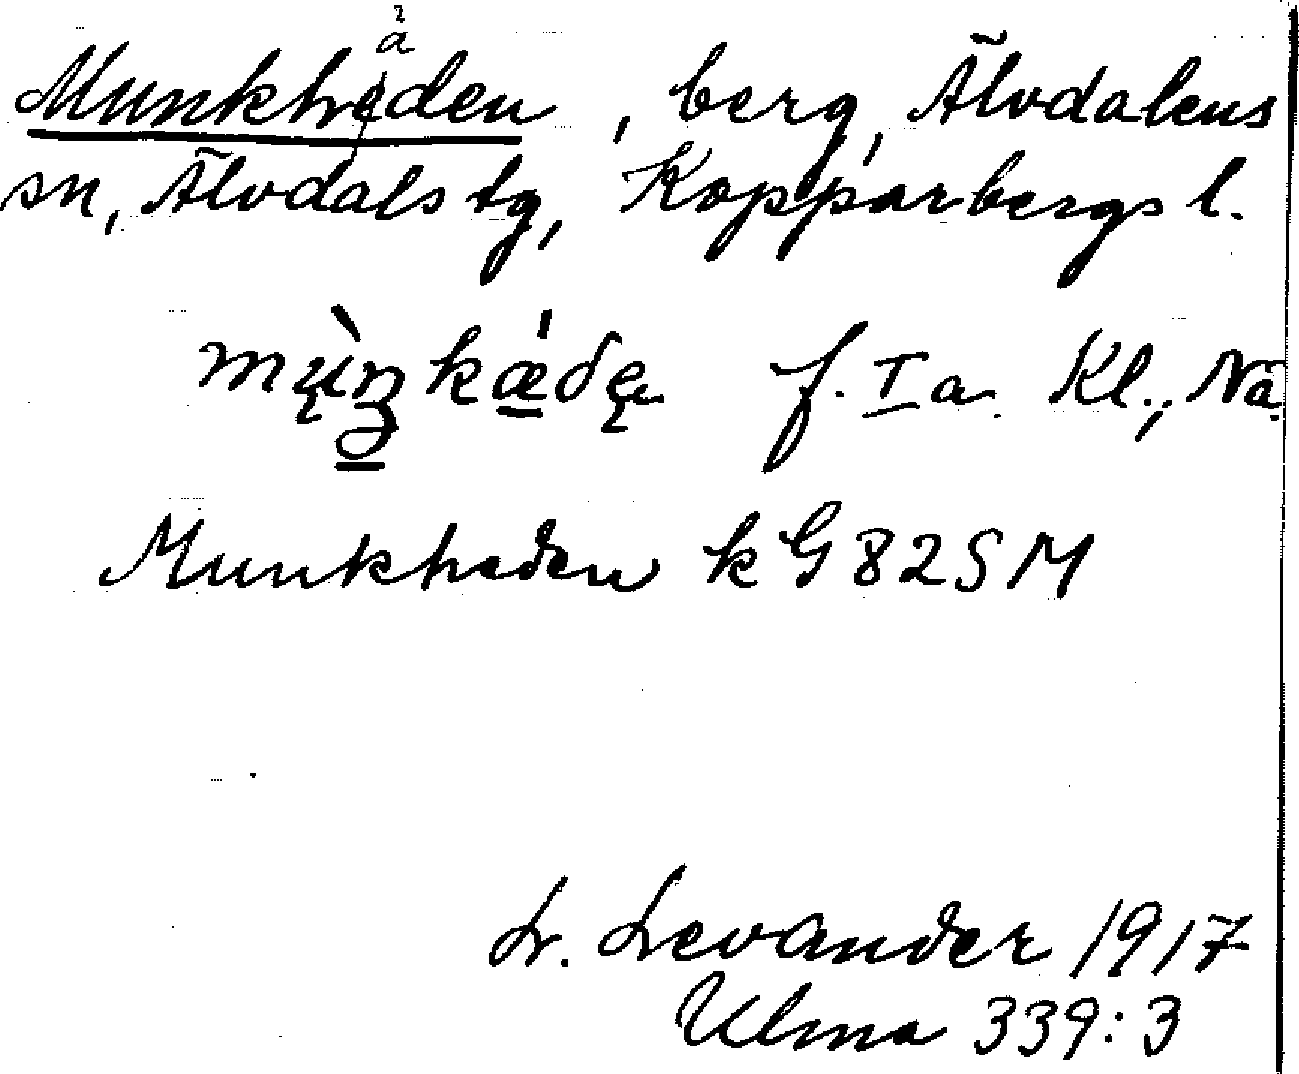 Munkheden, berg, Älvdalens
å
sn, Älvdals tg, Kopparbergs l.
f. I a. Kl., Nä
Munkheden k G82SM
L. Levander 1917
Ulma 339:3